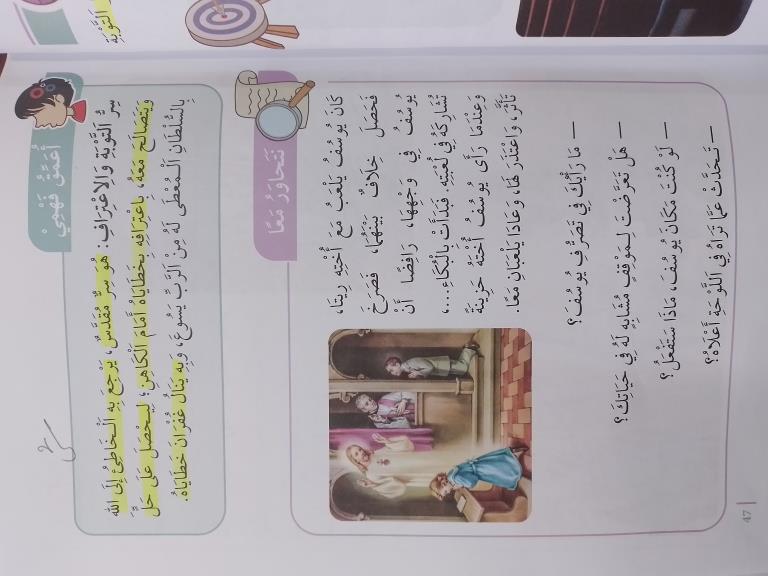 التَّوْبَةِ
أُعَمِّقُ فَهْمِيْ
سِرُّ التَّوْبَةِ وَالِاعْتِرَافِ: هُوَ سِرٌّ مُقَدَّسٌ، يَرْجِعُ بِهِ الْخَاطِئُ إِلَى اللهِ
وَيَتَصَالَحُ مَعَهُ، بِاعْتِرَافِهِ بِخَطَايَاهُ أَمَامَ الْكَاهِنِ؛ لِيَحْصَلَ عَلَى حَلٍّ
بِالسُّلْطَانِ الْمُعْطَى لَهُ مِنَ الرَّبِّ يَسُوعَ، وَبِهِ يَنَالُ غُفْرَانَ خَطَايَاهُ.
نَتَحَاوَرُ مَعًا
كَانَ يُوسُفُ يَلْعَبُ مَعَ أُخْتِهِ رِيتَا،
فَحَصَلَ خِلَافٌ بَيْنَهُمَا، فَصَرَخَ
يُوسُفُ فِي وَجْهِهَا، رَافِضًا أَنْ
تُشَارِكَهُ فِي لُعْبَتِهِ. فَبَدَأَتْ بِالْبُكَاءِ...،
وَعِنْدَمَا رَأَى يُوسُفُ أُخْتَهُ حَزِينَةً
تَأَثَّرَ، وَاعْتَذَرَ لَهَا، وَعَادَا يَلْعَبَانِ مَعًا.
– مَا رَأْيُكَ فِي تَصَرُّفِ يُوسُفَ؟
– هَلْ تَعَرَّضْتَ لِمَوْقِفٍ مُشَابِهٍ لَهُ فِي حَيَاتِكَ؟
– لَوْ كُنْتَ مَكَانَ يُوسُفَ، مَاذَا سَتَفْعَلُ؟
– تَحَدَّثْ عَمَّا تَرَاهُ فِي اللَّوْحَةِ أَعْلَاهُ؟
47